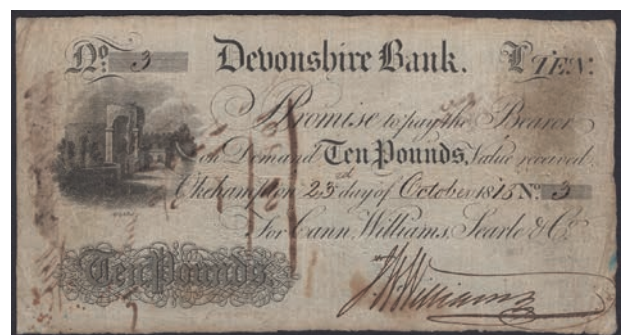 No. 3 Devonshire Bank. £ TEN.
I Promise to pay the Bearer
on Demand Ten Pounds, Value received.
Okehampton 23rd day of October 1815 No. 3
For Cann, Williams, Searle & Co.
Ten Pounds.
Williams